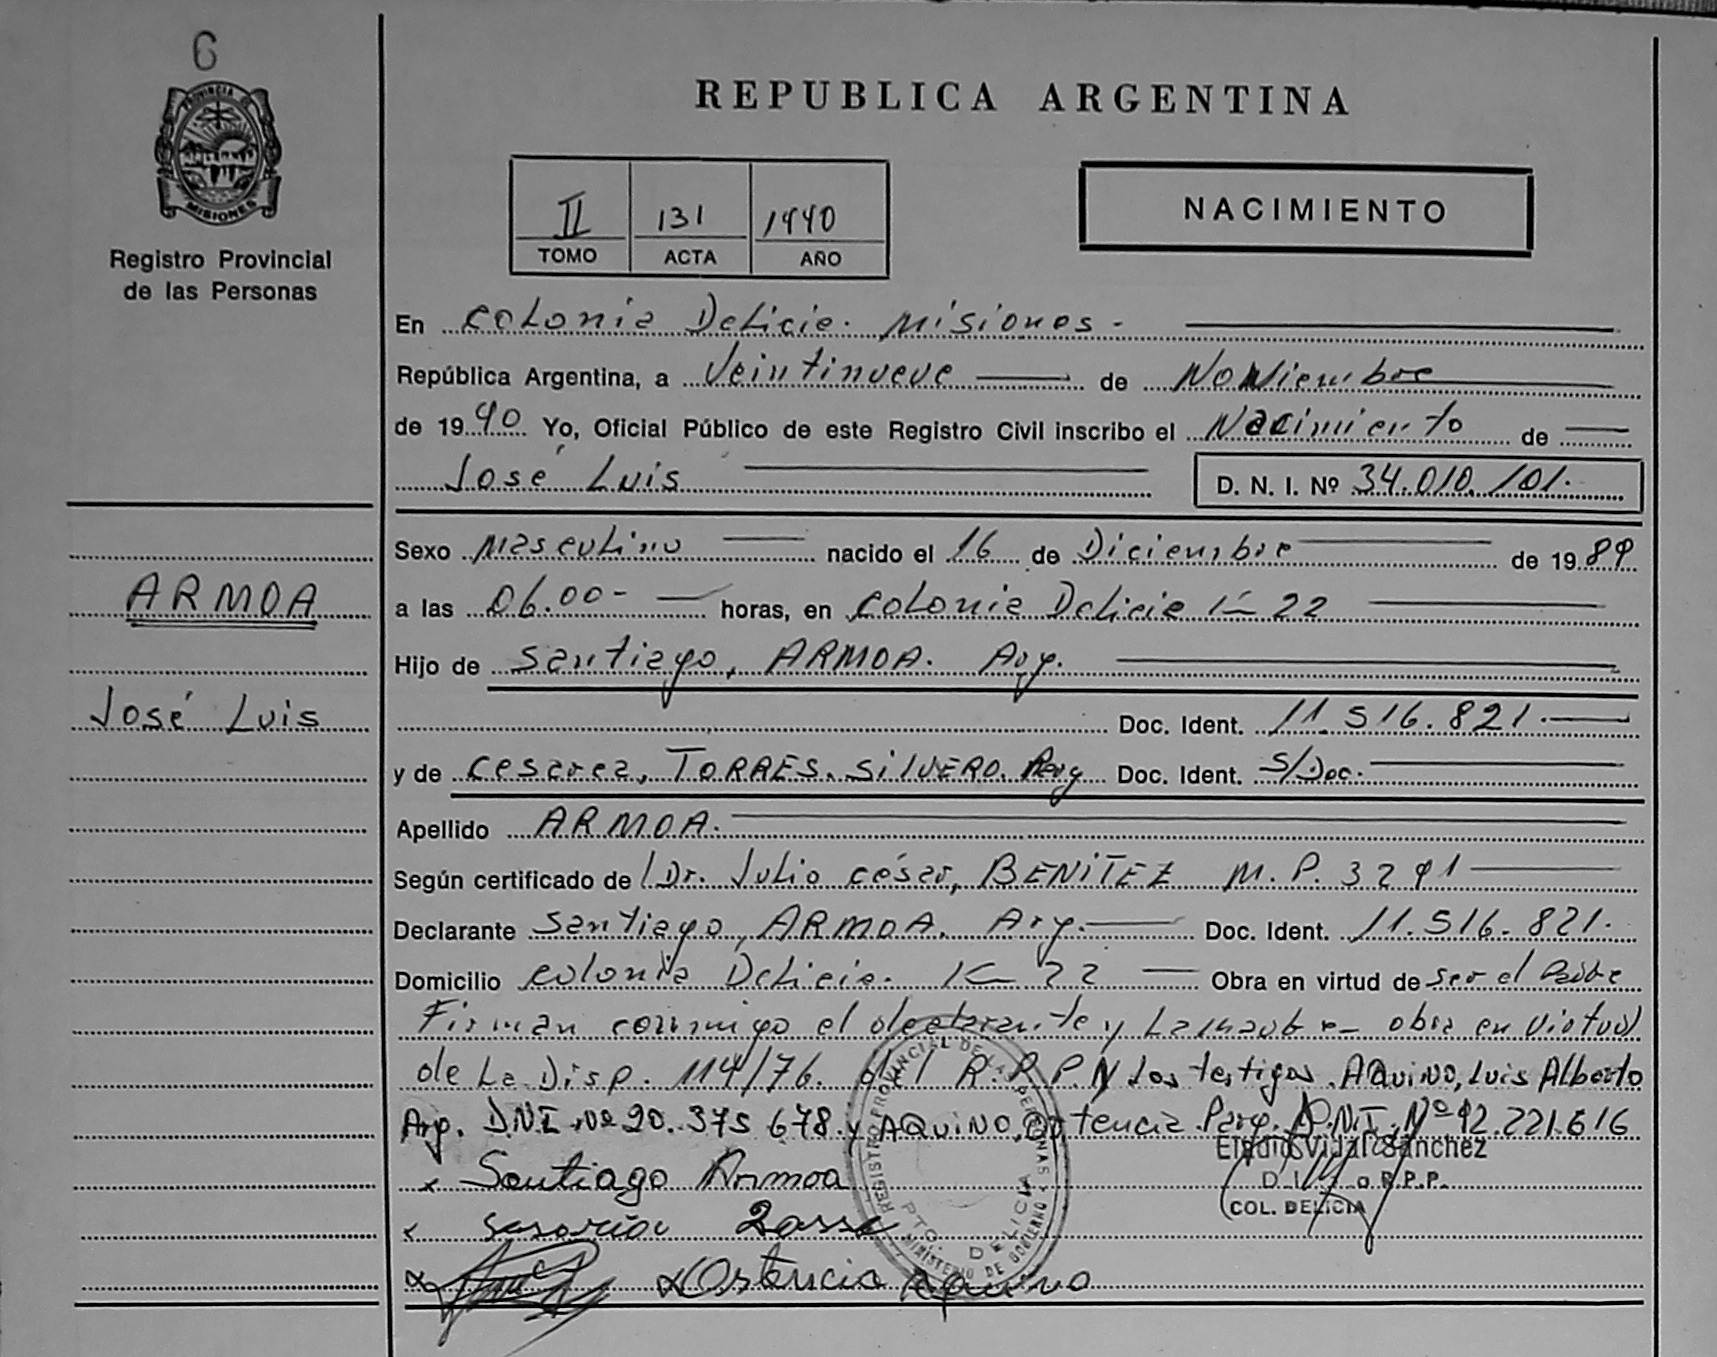 6
PROVINCIA DE
MISIONES
Registro Provincial
de las Personas
REPUBLICA ARGENTINA
II 131 1990
TOMO ACTA AÑO
NACIMIENTO
En Colonia Delicia. Misiones -
República Argentina, a Veintinueve de Noviembre
de 1990 Yo, Oficial Público de este Registro Civil inscribo el Nacimiento de
José Luis D. N. I. Nº 34.010.101.
Sexo Masculino nacido el 16 de Diciembre de 1989
ARMOA
a las 06.00- horas, en Colonia Delicia K- 22
Hijo de Santiago, ARMOA. Arg.
José Luis
Doc. Ident. 11.516.821.
y de Cesarea, TORRES. SILVERO. Parg Doc. Ident. S/Doc.
Apellido ARMOA.
Según certificado de Dr. Julio César, BENITEZ M.P. 3291
Declarante Santiago, ARMOA. Arg. Doc. Ident. 11.516.821.
Domicilio Colonia Delicia. K- 22 Obra en virtud de ser el Padre
Firman conmigo el declarante y La madre - obra en Virtud
de La Disp. 114/76. del R.P.P. y Los testigos. AQUINO, Luis Alberto
Arg. DNI. Nº 20.375.678 y AQUINO, Ostencia Parg. D.N.I. Nº 92.221.616
Eladio Vidal Sánchez
x Santiago Armoa
R.P.P.
COL. DELICIA
x
x Ostencia Aquino
REGISTRO PROVINCIAL DE LAS PERSONAS
PTO. DELICIA
MINISTERIO DE GOBIERNO